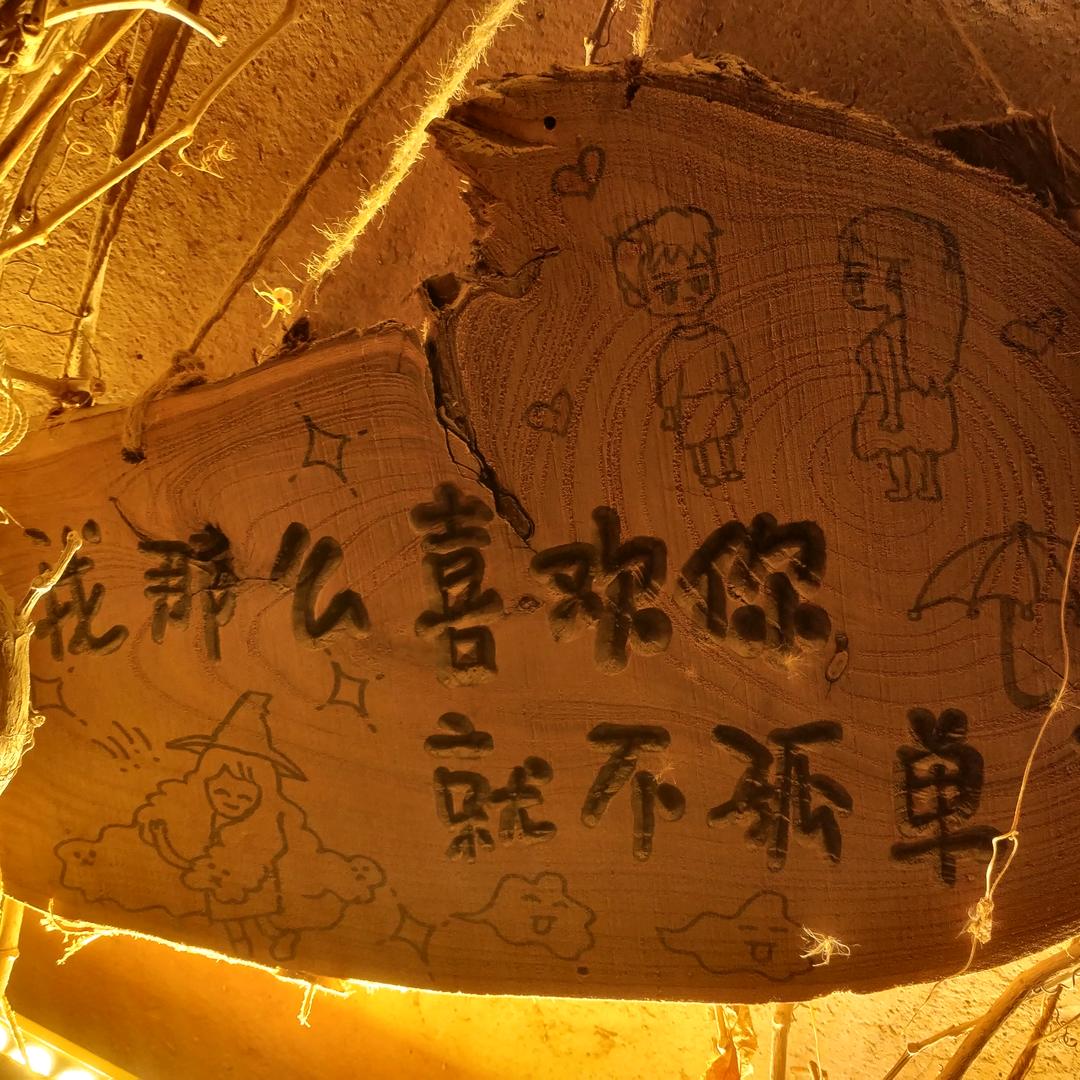 我那么喜欢你
就不孤单